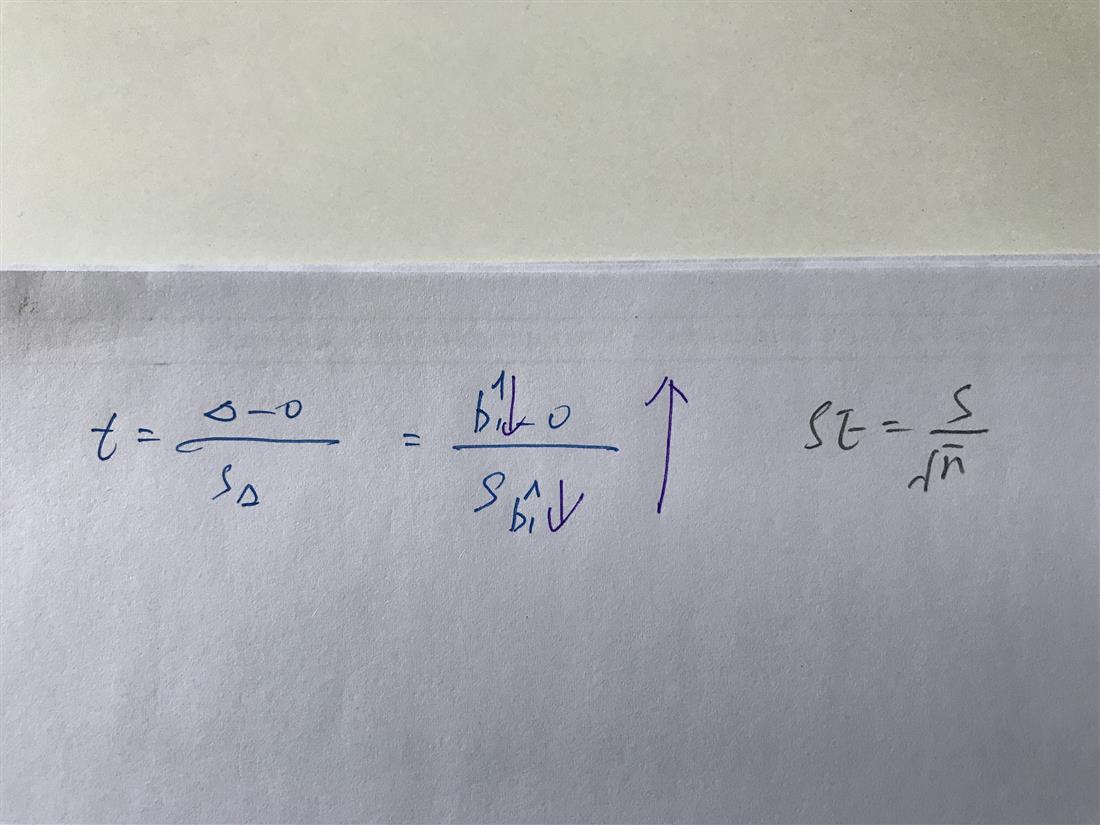 t = (Δ - 0) / S_Δ = (b̂₁↓ - 0) / S_b̂₁↓ ↑ SE = S / √n